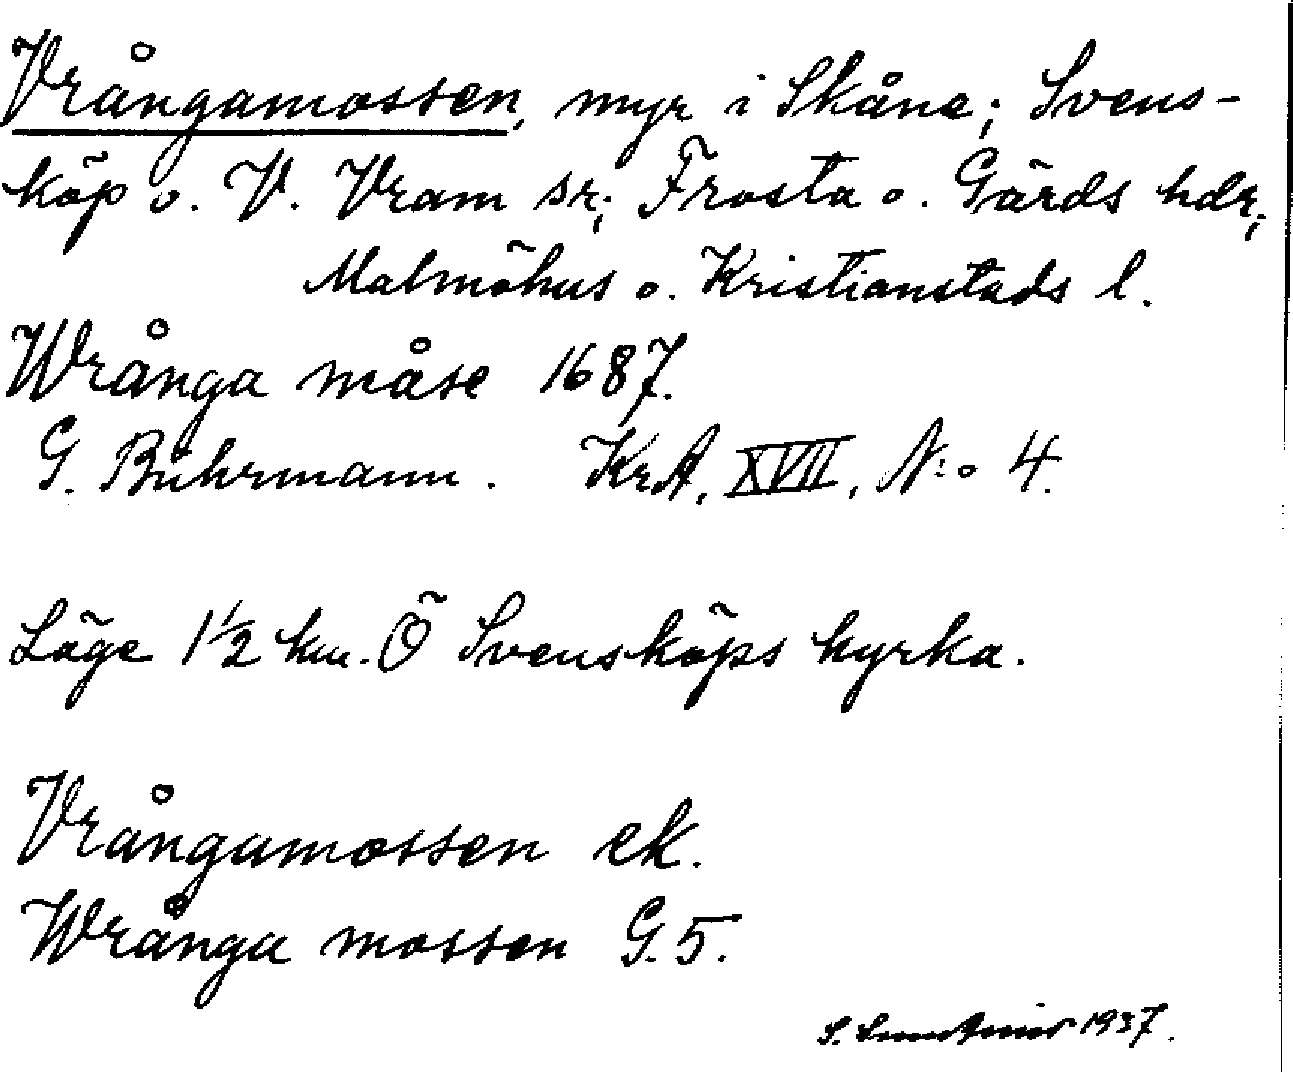 Vrångamossen, myr i Skåne; Svens-
köp o. V. Vram sr; Frosta o. Gärds hdr;
Malmöhus o. Kristianstads l.
Wrånga måse 1687.
G. Buhrmann. KrA, XVII, N:o 4.
Läge 1½ km. Ö Svensköps kyrka.
Vrångamossen ek.
Wrånga mossen G.5.
S. 1937.